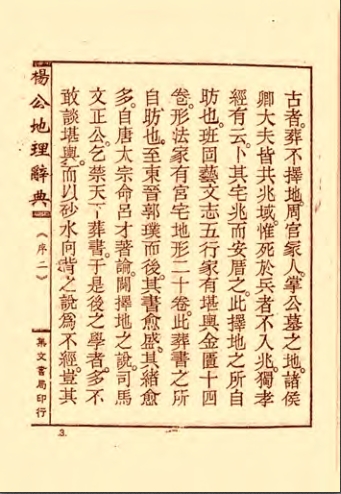 古者。葬不擇地。周官冢人。掌公墓之地。諸侯
卿大夫皆共兆域。惟死於兵者不入兆。獨孝
經有云。卜其宅兆而安厝之。此擇地之所自
昉也。班固藝文志五行家有堪輿金匱十四
卷。形法家有宮宅地形二十卷。此葬書之所
自昉也。至東晉郭璞而後。其書愈盛。其緒愈
多。自唐太宗命呂才著論。闢擇地之說。司馬
文正公。乞禁天下葬書。于是後之學者。多不
敢談堪輿。而以砂水向背之說為不經。豈其
楊公地理辭典
《序二》
集文書局印行
3